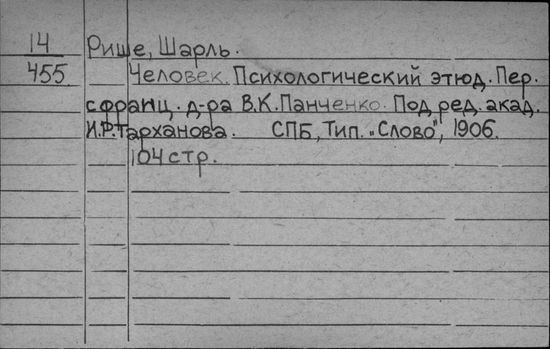 14 Рише, Шарль.
455 Человек. Психологический этюд. Пер.
с франц. д-ра В.К.Панченко. Под ред. акад.
И.Р.Тарханова. СПБ, Тип. „Слово", 1906.
104 стр.